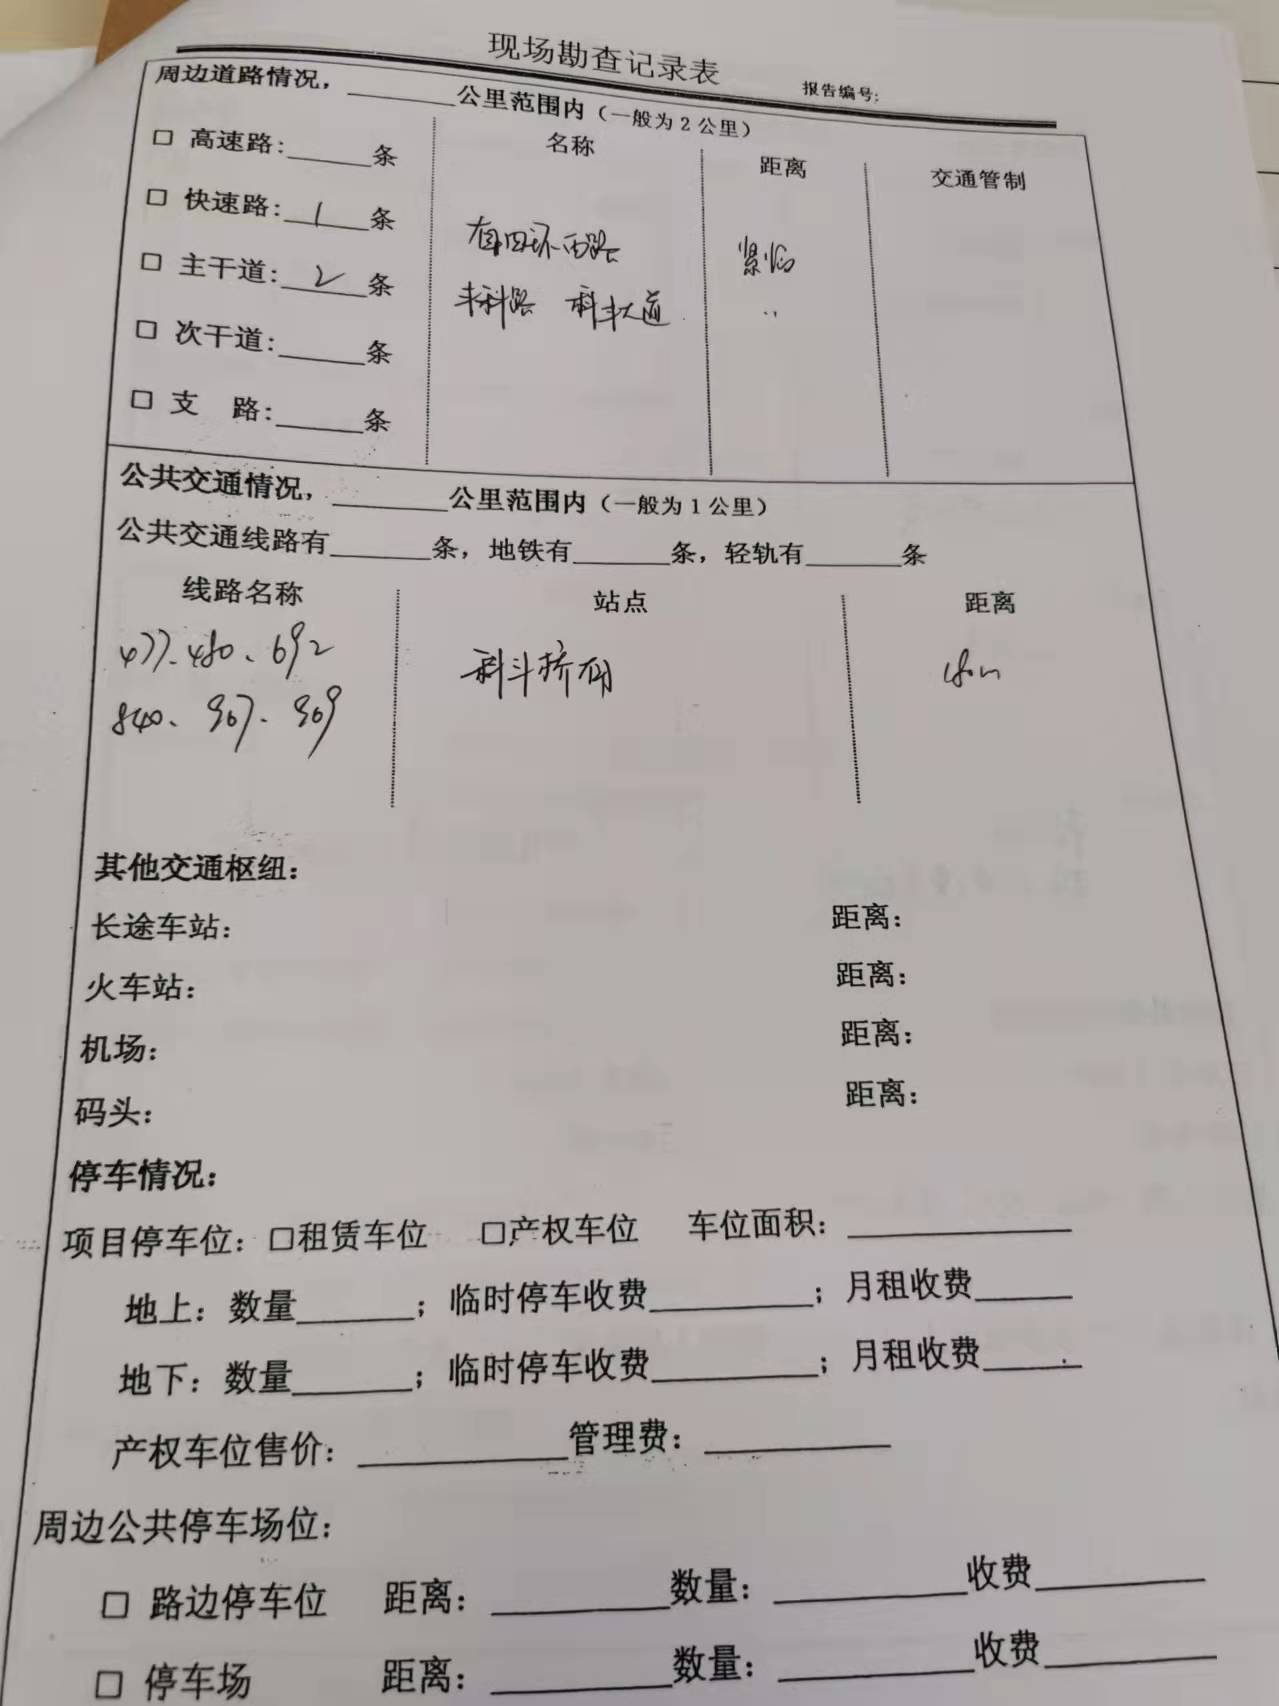 现场勘查记录表
报告编号:
周边道路情况，________公里范围内（一般为2公里）
名称 距离 交通管制
□ 高速路:______条
□ 快速路:__1__条 南四环西路 紧临
□ 主干道:__2__条 丰科路 科丰大道 〃
□ 次干道:______条
□ 支 路:______条
公共交通情况，________公里范围内（一般为1公里）
公共交通线路有_______条，地铁有_______条，轻轨有_______条
线路名称 站点 距离
477、480、692 科丰桥南
840、967、969
其他交通枢纽：
长途车站： 距离：
火车站： 距离：
机场： 距离：
码头： 距离：
停车情况：
项目停车位：□租赁车位 □产权车位 车位面积：____________
地上：数量_______；临时停车收费_________；月租收费______
地下：数量_______；临时停车收费_________；月租收费______
产权车位售价：____________管理费：__________
周边公共停车场位：
□ 路边停车位 距离：__________数量：__________收费_________
□ 停车场 距离：__________数量：__________收费_________